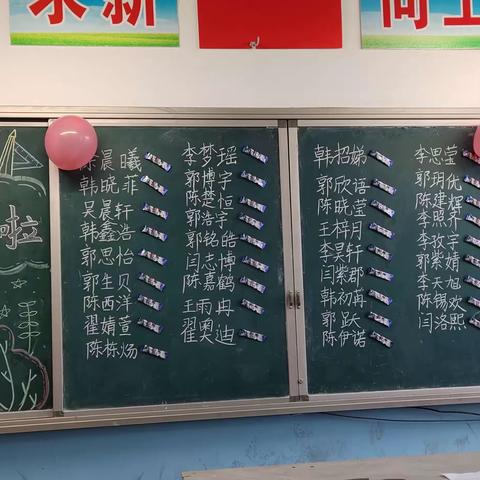 求新
向上
啦
晨曦
韩晓菲
吴晨轩
韩鑫浩
郭思怡
郭生贝
陈西洋
翟婧萱
陈栋炀
李梦瑶
郭博宇
陈楚恒
郭浩宇
郭铭皓
闫志博
陈嘉鹤
王雨冉
翟奥迪
韩招娣
郭欣语
陈晓莹
王梓月
李昊轩
闫紫郡
韩初冉
郭跃
陈伊诺
李思莹
郭玥优
陈建辉
李照齐
李孜宇
郭紫婧
李天旭
陈锡欢
闫洛熙